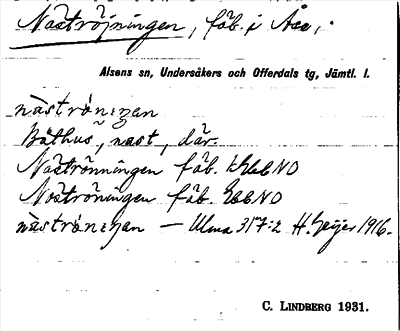 Naströjningen, fäb. i Åse,.
Alsens sn, Undersåkers och Offerdals tg, Jämtl. l.
Båthus, nast, där.
Naströnningen fäb. GEbNO
Naströningen fäb. GEbNO
— Ulma 317:2 H. Geijer 1916.
C. LINDBERG 1931.